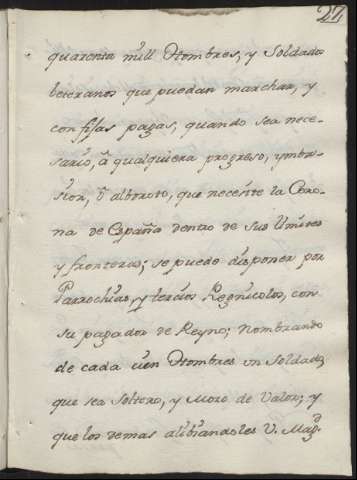 27
quarenta mill Hombres, y Soldados
beteranos que puedan marchar, y
con fixas pagas, quando sea nece-
sario, â qualquiera progreso, ymba-
sion, ô alboroto, que necesite la Coro-
na de España dentro de sus limites
y fronteras; se puede disponer por
Parrochias, y tercios Regnicolos, con
su pagador de Reyno; Nombrando
de cada cien Hombres un Soldado,
que sea Soltero, y Moro de Valor; y
que los demas alibiandoles V. Magd.